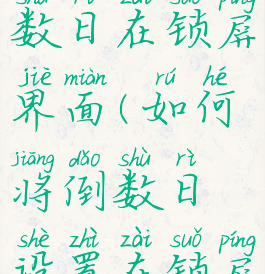 shǔ rì zài suǒ píng
数日在锁屏
jiè miàn rú hé
界面(如何
jiāng dǎo shù rì
将倒数日
shè zhì zài suǒ píng
设置在锁屏